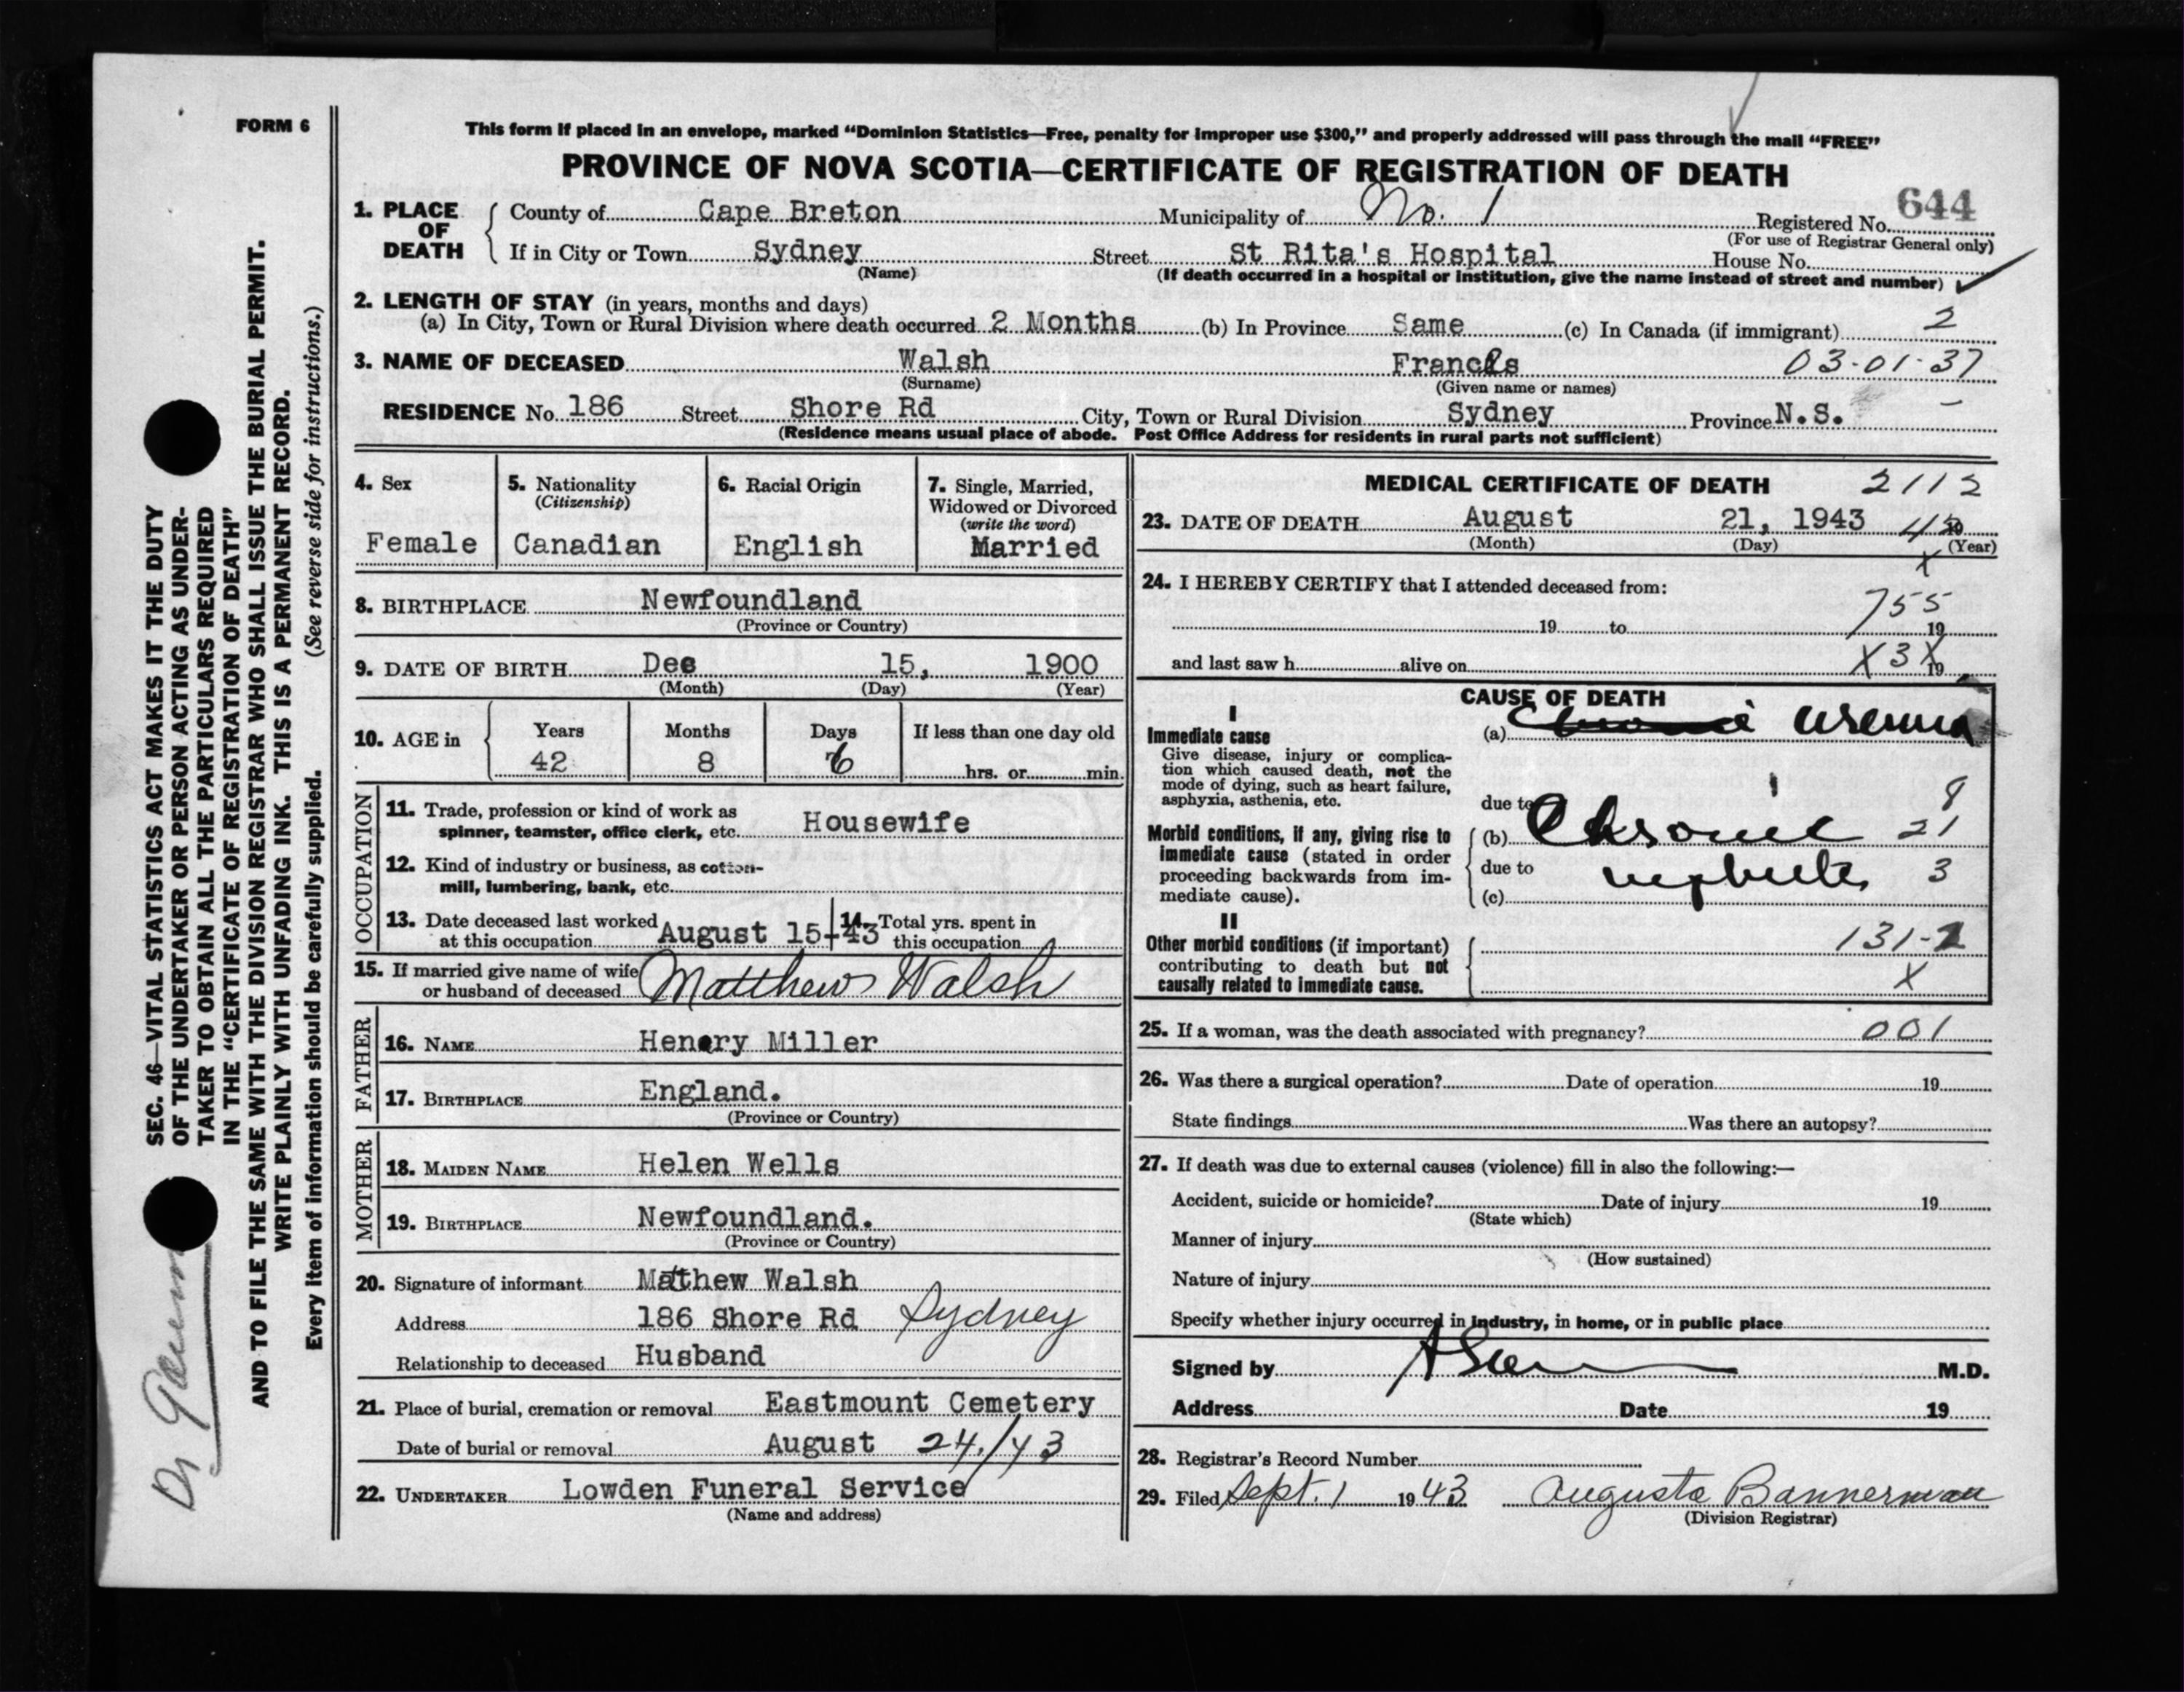 FORM 6
SEC. 46—VITAL STATISTICS ACT MAKES IT THE DUTY
OF THE UNDERTAKER OR PERSON ACTING AS UNDER-
TAKER TO OBTAIN ALL THE PARTICULARS REQUIRED
IN THE "CERTIFICATE OF REGISTRATION OF DEATH"
AND TO FILE THE SAME WITH THE DIVISION REGISTRAR WHO SHALL ISSUE THE BURIAL PERMIT.
WRITE PLAINLY WITH UNFADING INK. THIS IS A PERMANENT RECORD.
Every item of information should be carefully supplied. (See reverse side for instructions.)
Dr
This form if placed in an envelope, marked "Dominion Statistics—Free, penalty for improper use $300," and properly addressed will pass through the mail "FREE"
PROVINCE OF NOVA SCOTIA—CERTIFICATE OF REGISTRATION OF DEATH
1. PLACE OF DEATH
County of Cape Breton Municipality of No. 1 Registered No. 644
(For use of Registrar General only)
If in City or Town Sydney Street St Rita's Hospital House No.
(Name) (If death occurred in a hospital or institution, give the name instead of street and number)
2. LENGTH OF STAY (in years, months and days)
(a) In City, Town or Rural Division where death occurred 2 Months (b) In Province Same (c) In Canada (if immigrant) 2
3. NAME OF DECEASED Walsh Frances 03-01-37
(Surname) (Given name or names)
RESIDENCE No. 186 Street Shore Rd City, Town or Rural Division Sydney Province N.S.
(Residence means usual place of abode. Post Office Address for residents in rural parts not sufficient)
4. Sex
Female
5. Nationality
(Citizenship)
Canadian
6. Racial Origin
English
7. Single, Married,
Widowed or Divorced
(write the word)
Married
8. BIRTHPLACE Newfoundland
(Province or Country)
9. DATE OF BIRTH Dec 15, 1900
(Month) (Day) (Year)
10. AGE in
Years Months Days If less than one day old
42 8 6 hrs. or min.
OCCUPATION
11. Trade, profession or kind of work as
spinner, teamster, office clerk, etc. Housewife
12. Kind of industry or business, as cotton-
mill, lumbering, bank, etc.
13. Date deceased last worked
at this occupation August 15-43
14. Total yrs. spent in
this occupation
15. If married give name of wife
or husband of deceased Matthew Walsh
FATHER
16. NAME Henery Miller
17. BIRTHPLACE England.
(Province or Country)
MOTHER
18. MAIDEN NAME Helen Wells
19. BIRTHPLACE Newfoundland.
(Province or Country)
20. Signature of informant Matthew Walsh
Address 186 Shore Rd Sydney
Relationship to deceased Husband
21. Place of burial, cremation or removal Eastmount Cemetery
Date of burial or removal August 24/43
22. UNDERTAKER Lowden Funeral Service
(Name and address)
MEDICAL CERTIFICATE OF DEATH 2112
23. DATE OF DEATH August 21, 1943
(Month) (Day) (Year)
X
24. I HEREBY CERTIFY that I attended deceased from:
755
19 to 19
and last saw h alive on 19 X3X
CAUSE OF DEATH
I
Immediate cause
Give disease, injury or complica-
tion which caused death, not the
mode of dying, such as heart failure,
asphyxia, asthenia, etc.
(a) Uremia
due to
Morbid conditions, if any, giving rise to
immediate cause (stated in order
proceeding backwards from im-
mediate cause).
(b) Chronic 21
due to nephritis 3
(c)
II
Other morbid conditions (if important)
contributing to death but not
causally related to immediate cause.
131-
X
25. If a woman, was the death associated with pregnancy? 001
26. Was there a surgical operation? Date of operation 19
State findings Was there an autopsy?
27. If death was due to external causes (violence) fill in also the following:—
Accident, suicide or homicide? Date of injury 19
(State which)
Manner of injury
(How sustained)
Nature of injury
Specify whether injury occurred in industry, in home, or in public place
Signed by M.D.
Address Date 19
28. Registrar's Record Number
29. Filed Sept. 1 1943 Augusta Bannerman
(Division Registrar)